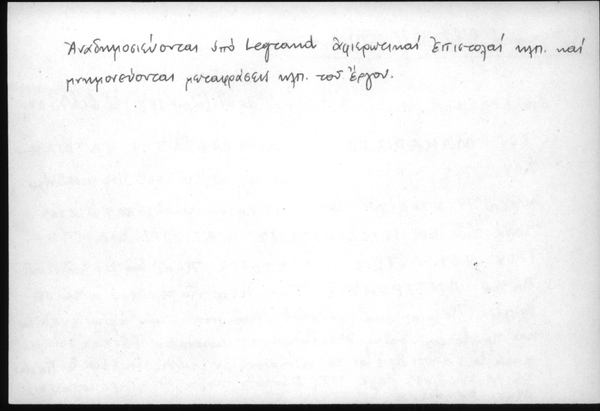 Ἀναδημοσιεύονται ὑπό Legrand ἀφιερωτικαί ἐπιστολαί κλπ. καί
μνημονεύονται μεταφράσεις κλπ. τοῦ ἔργου.